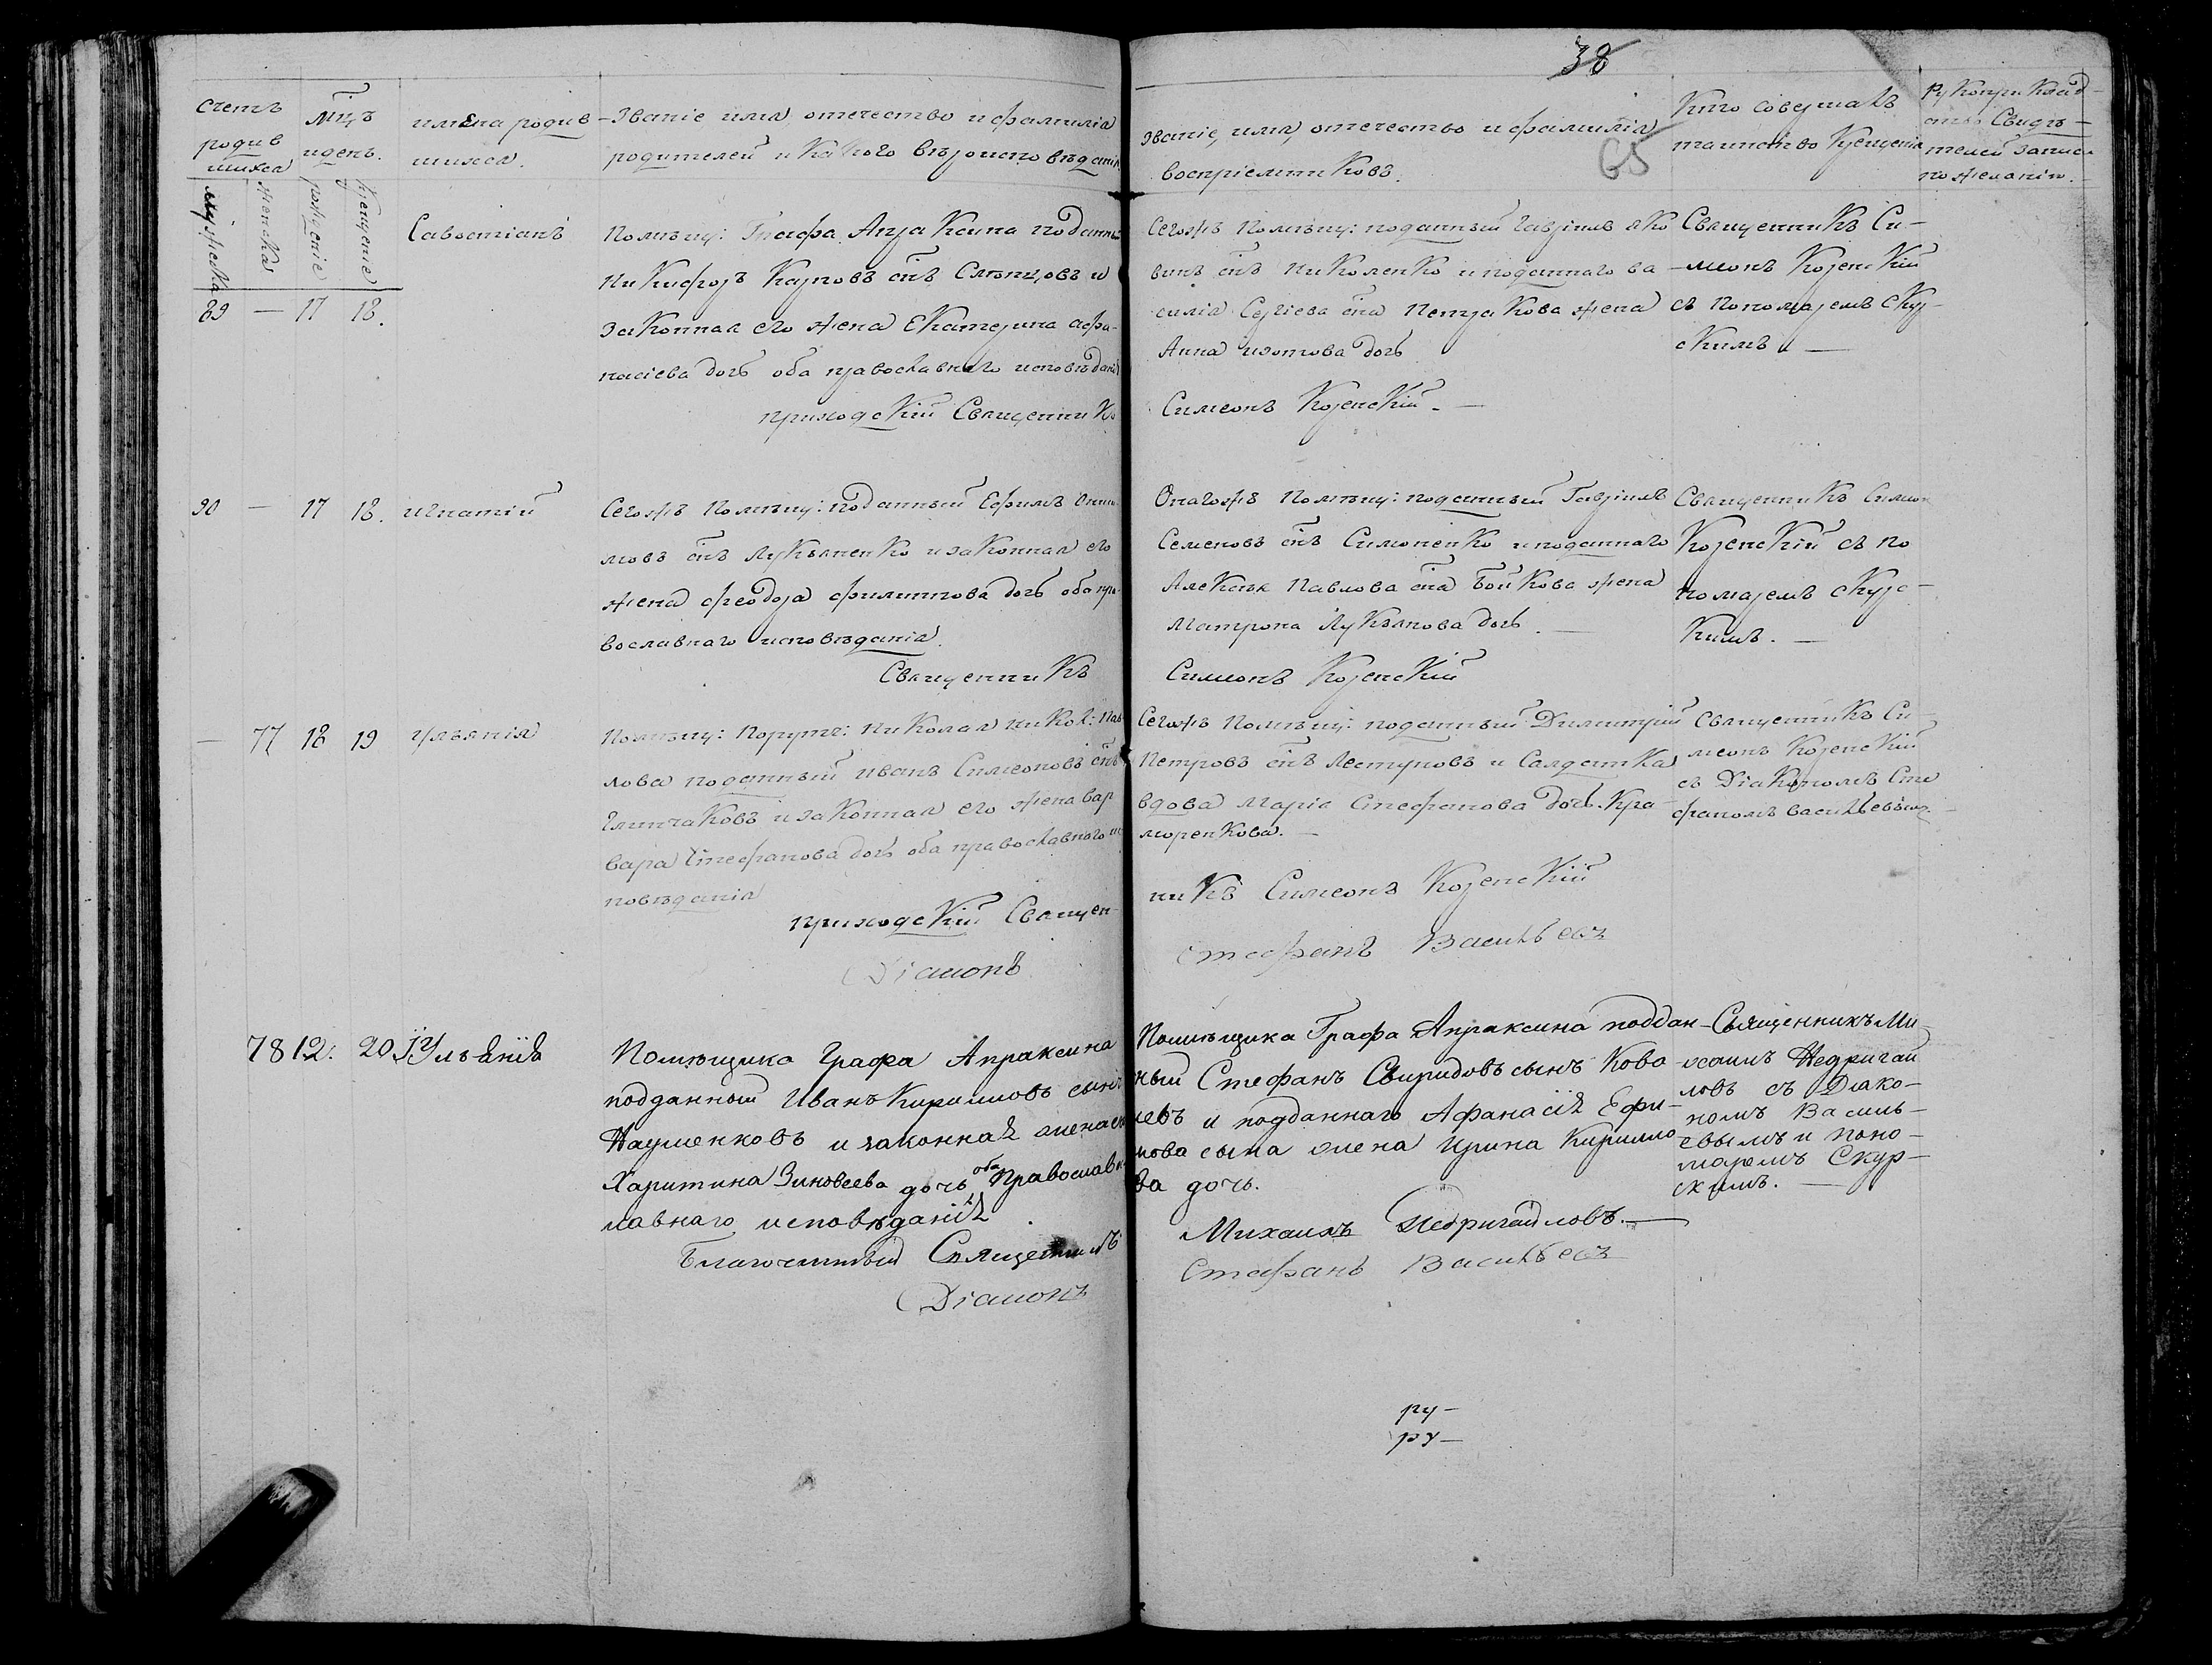 38
65
счетъ родившихся
мужеска
женска
мцъ и день.
рождение
крещение
имена родив-
шихся.
Званіе имя, отечество и фамилія
родителей и какого вѣроисповѣданія
Званіе, имя, отечество и фамилія
воспріемниковъ.
Кто совершалъ
таинство Крещенія
Рукоприклад-
ство Свидѣ-
телей записи
по желанію.
89 — 17 18.
Савостіанъ
Помѣщ: Графа Апраксина поданный
Никифоръ Карповъ снъ Слѣпцовъ и
законная его жена Екатерина Афа-
насіева дочь оба православнаго исповѣданія
приходскій Священникъ
Сегожъ Помѣщ: поданный Гавріилъ Яко
вивъ снъ Николенко и поданнаго Ва
силія Сергіева сна Петракова жена
Анна изотова дочь
Симеонъ Коренскій. —
Священникъ Си-
меонъ Коренскій
съ Пономаремъ Скур-
скимъ. —
90 — 17 18. игнатій
Сегожъ Помѣщ: поданный Ефимъ
мовъ снъ Лукьяненко и законная его
жена Феодора Филиппова дочь оба пра-
вославнаго исповѣданія.
Священникъ
Онагожъ Помѣщ: поданный Гавріилъ
Семеновъ снъ Симоненко и поданнаго
Алексѣя Павлова сна Бойкова жена
Матрона Лукьянова дочь. —
Симеонъ Коренскій
Священникъ Симеон
Коренскій съ по
номаремъ Скурс-
кимъ. —
— 77 18 19 Ульянія
Помѣщ: Поруч: Николая Никол: Пав
лова поданный иванъ Симеоновъ снъ
Глинчаковъ и законная его жена вар
вара Стефанова дочь оба православнаго ис
повѣданія
приходскій Священ-
Діаконъ
Сегожъ Помѣщ: поданный Димитрій
Петровъ снъ Лестуновъ и Салдатка
вдова Маріа Стефанова дочь Кра-
моренкова. —
никъ Симеонъ Коренскій
Стефанъ Васильевъ
Священникъ Си-
меонъ Коренскій
съ Діакономъ Сте
фаномъ васильевымъ
78 12. 20 Іульянія
Помѣщика Графа Апраксина
подданный Иванъ Кириловъ сынъ
Науменковъ и законная жена его
Харитина Зиновеева дочь оба Православ-
лавнаго исповѣданія.
Благочинный Священникъ
Діаконъ
Помѣщика Графа Апраксина поддан-
ный Стефанъ Свиридовъ сынъ Кова
левъ и подданнаго Афанасія Ефи-
мова сына жена Ирина Кирилло
ва дочь.
Михаилъ Недригайловъ. —
Стефанъ Васильевъ
Священникъ Ми-
хаилъ Недригай
ловъ съ Діако-
номъ Василь-
евымъ и поно-
маремъ Скур-
скимъ. —
ру-
ру-